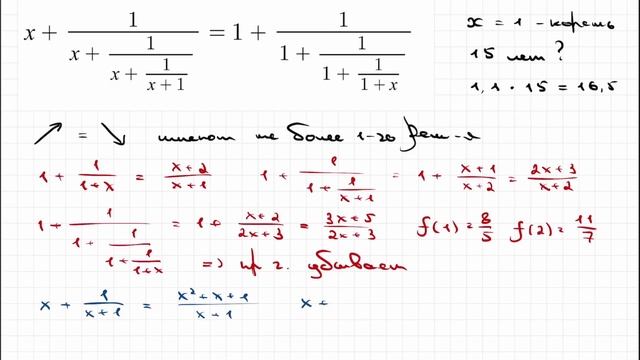 x + 1/(x + 1/(x + 1/(x+1))) = 1 + 1/(1 + 1/(1 + 1/(1+x)))
x = 1 - корень
15 лет?
1,1 · 15 = 16,5
↗ = ↘ имеют не более 1-го реш-я
1 + 1/(1+x) = (x+2)/(x+1)   1 + 1/(1 + 1/(x+1)) = 1 + (x+1)/(x+2) = (2x+3)/(x+2)
1 + 1/(1 + 1/(1 + 1/(1+x))) = 1 + (x+2)/(2x+3) = (3x+5)/(2x+3)   f(1) = 8/5   f(2) = 11/7
=> пр ч. убывает
x + 1/(x+1) = (x²+x+1)/(x+1)   x +